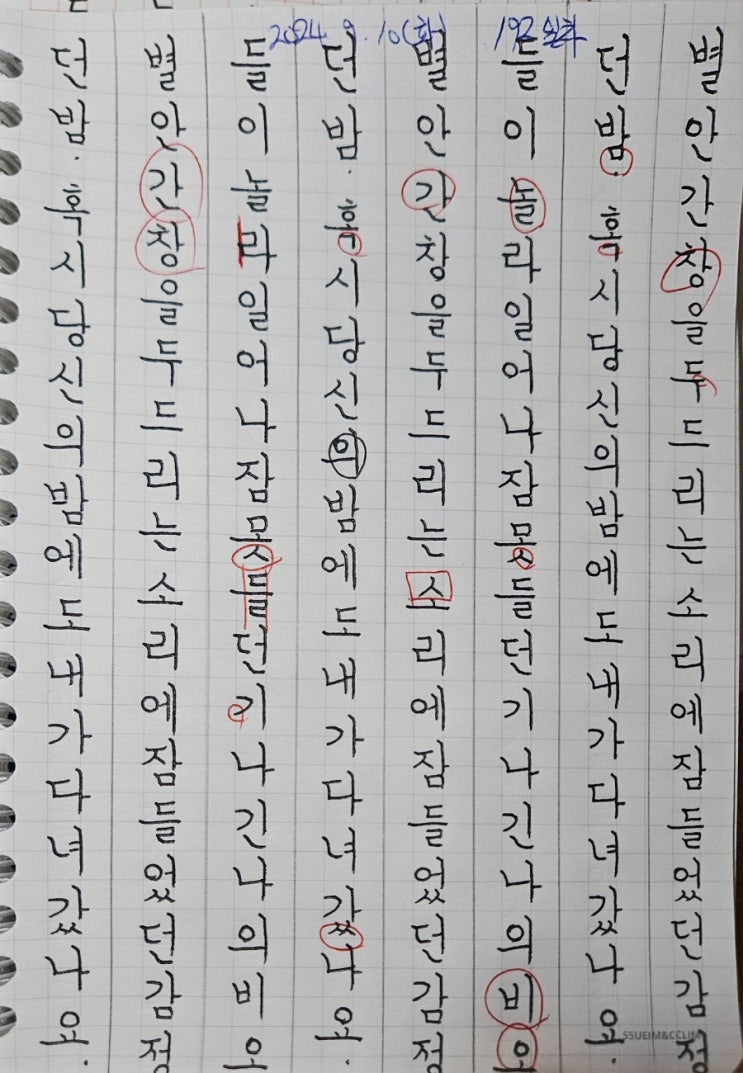 2024. 9. 10(화) 192일차
던밤. 혹시당신의밤에도내가다녀갔나요.
별안간창을두드리는소리에잠들었던감정
들이놀라일어나잠못들던기나긴나의비오
던밤. 혹시당신의밤에도내가다녀갔나요.
별안간창을두드리는소리에잠들었던감정
들이놀라일어나잠못들던기나긴나의비오
던밤. 혹시당신의밤에도내가다녀갔나요.
별안간창을두드리는소리에잠들었던감정
SSUEIM&CCLIM